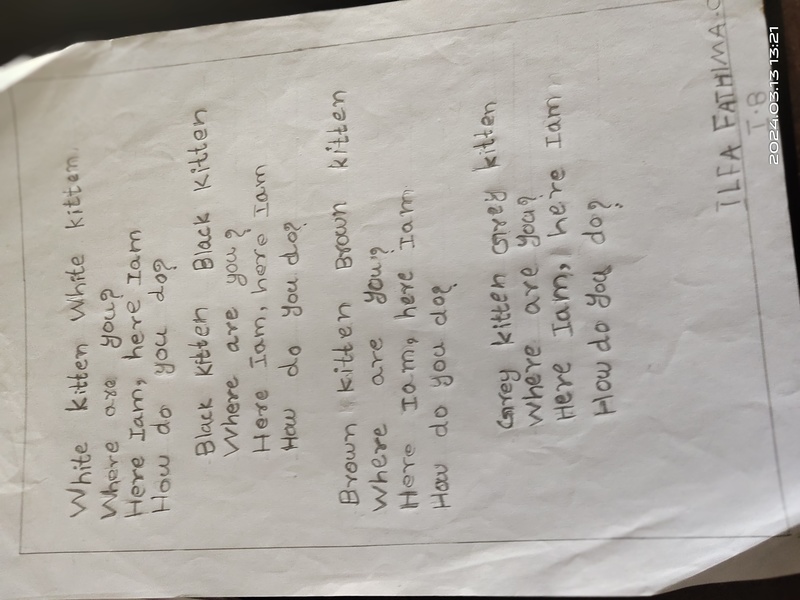 White kitten White kitten.
Where are you?
Here Iam, here Iam
How do you do?
Black kitten Black kitten
Where are you?
Here Iam, here Iam
How do you do?
Brown kitten Brown kitten
Where are you?
Here Iam, here Iam
How do you do?
Grey kitten Grey kitten
Where are you?
Here Iam, here Iam
How do you do?
ILFA FATHIMA.C
2024.03.13 13:21